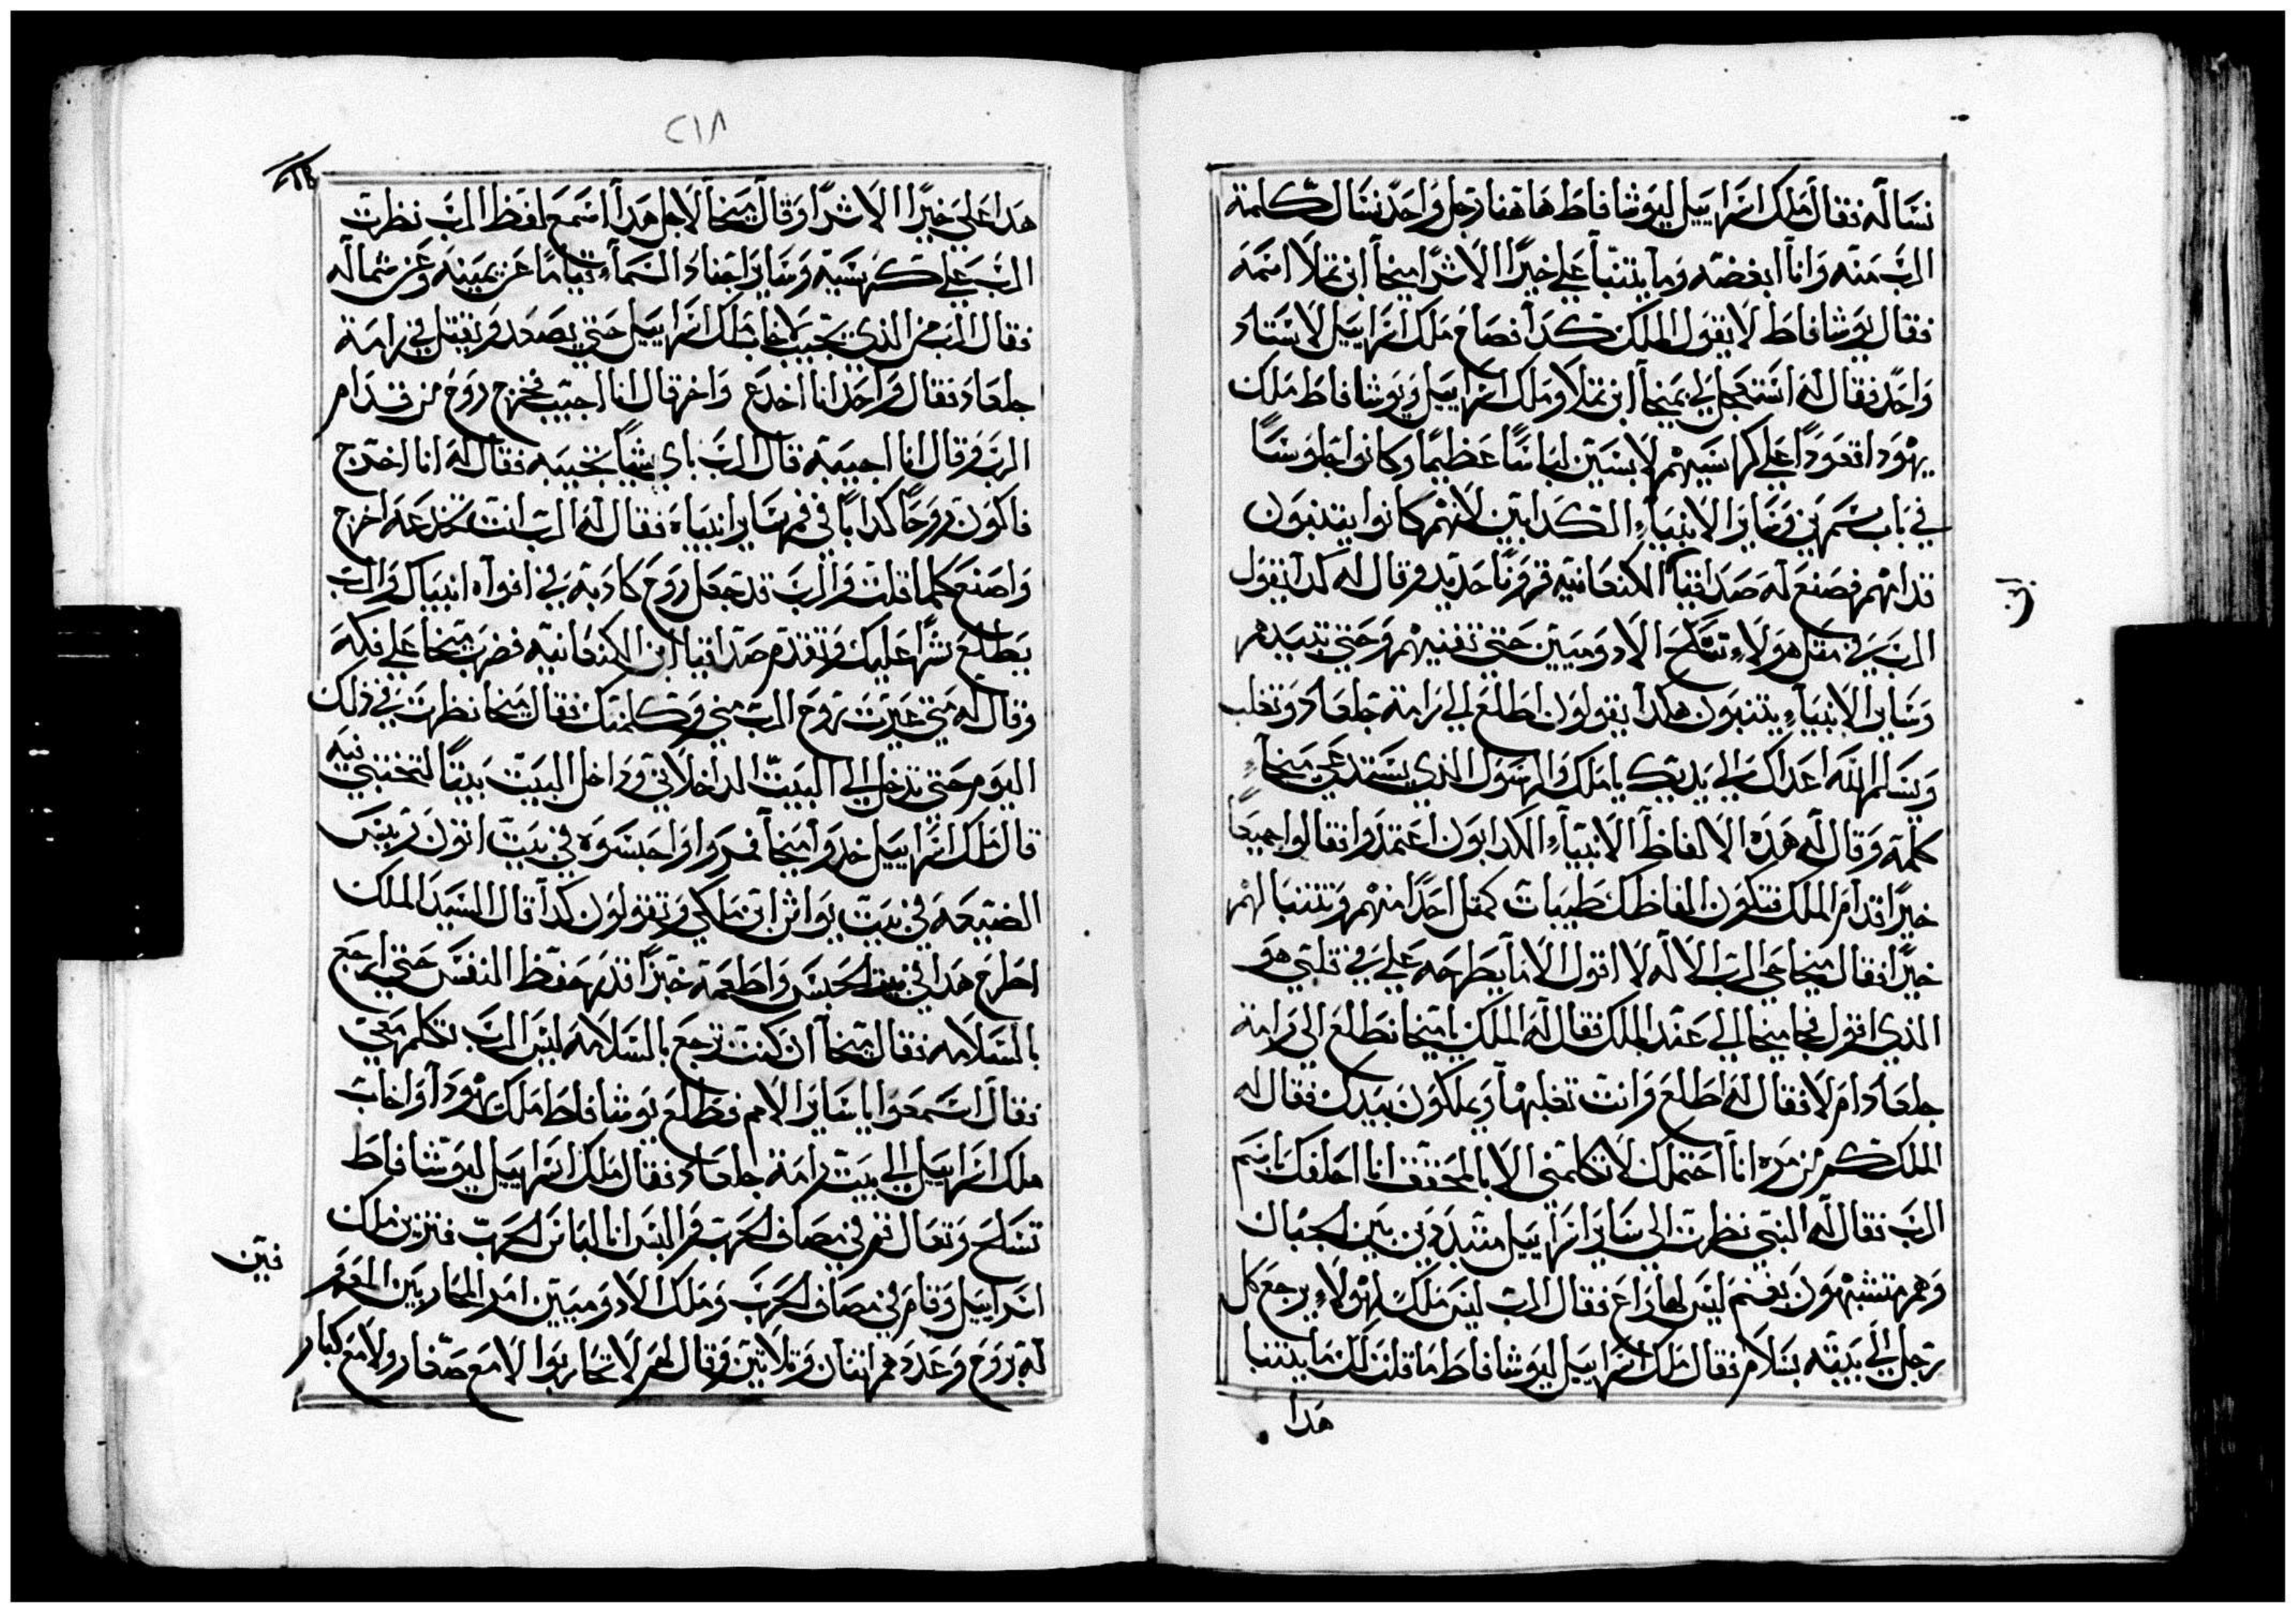 نساله فقال ملك اسراييل ليوشافاط هاهنا رجل واحد نسال كلمة
الرب منه وانا ابغضه وما يتنبأ علي خيرا الا شرا ميخا ابن نملا اسمه
فقال يوشافاط لا يقول الملك كدا فصاح ملك اسراييل لاستاد
واحد فقال له استعجل لي بميخا ابن نملا وملك اسراييل ويوشافاط ملك
يهودا قعودا علي كراسيهم لابسين لباسا عظيما وكانوا جلوسا
في باب سمرين وساير الانبياء الكدابين لانهم كانوا يتنبون
قدامهم فصنع له صداقيا الكنعانيه قرونا حديد وقال له كدا يقول
الرب في مثل هولاء تسلح الادوميين حتي تفنيهم وحتي تبيدهم
وساير الانبياء يتنبون هكدا يقولون اطلع الي رامة جلعاد وتغلب
ويسلم الله اعداك الي يديك يا ملك والرسول الذي يستدعي ميخا
كلمه وقال له هده الالفاظ الانبياء الكدابون اعتمدوا فقالوا جميعا
خيرا قدام الملك فتكون الفاظك طيبات كمثل احدا منهم وتتنبا لهم
خيرا فقال ميخا حي الرب الاله لا اقول الا ما يطرحه علي في قلبي هو
الذي اقول فجا ميخا الي عند الملك فقال له الملك يا ميخا نطلع الي رامة
جلعاد ام لا فقال له اطلع وانت تغلبها ويملكون بيدك فقال له
الملك كم من مره انا احتملك لا تكلمني الا بالمحقق انا احلفك باسم
الرب فقال له النبي نظرت الي ساير اسراييل متبددين بين الجبال
وهم متشبهون بغنم ليس لها راع فقال الرب ليس ملك لهولاء يرجع كل
رجل الي بيته بسلام فقال ملك اسراييل ليوشافاط ما قلت لك ما يتنبا
هدا
٢١٨
هدا علي خيرا الا شرا وقال ميخا لاجل هدا اسمع لفظ الرب نظرت
الرب علي كرسيه وساير اجناد السماء قياما عن يمينه وعن شماله
فقال الرب من الذي يجيب لاخاب ملك اسراييل حتي يصعد ويقتل في رامة
جلعاد فقال واحد انا اخدع واخر قال انا اجيب فخرج روح من قدام
الرب وقال انا اجيبه قال الرب باي شيا تجيبه فقال له انا اخرج
فاكون روحا كدابا في فم ساير انبياه فقال له الرب انت تخدعه اخرج
واصنع كلما قلت والرب قد جعل روح كادبة في افواه انبياك والرب
يطلع شرا عليك وتقدم صداقيا ابن الكنعانيه فضرب ميخا علي فكه
وقال له متي عبرت روح الرب مني وكلمتك فقال ميخا نظرت في ذلك
اليوم حتي تدخل الي البيت الداخلاني وداخل البيت بيتا لتختبي فيه
قال ملك اسراييل خدوا ميخا فردوا واحبسوه في بيت انون رييس
الضيعه في بيت يواش ابن ملكي وتقولون كدا قال السيد الملك
اطرح هدا في بيت الحبس واطعمه خبزا قدر حفظ النفس حتي ارجع
بالسلامه فقال ميخا ان كنت ترجع بالسلامه ليس الرب تكلم معي
فقال اسمعوا يا ساير الامم فطلع يوشافاط ملك يهودا واخاب
ملك اسراييل الي بيت رامة جلعاد فقال ملك اسراييل ليوشافاط
تسلح وتعال قم في مصاف الحرب والبس انا لباس الحرب فتزين ملك
اسراييل وقام في مصاف الحرب وملك الادوميين امر المحاربين المعم
له بروح وعددهم اتنان وتلاتين وقال لهم لا تحاربوا لا مع صغار ولا مع كبار